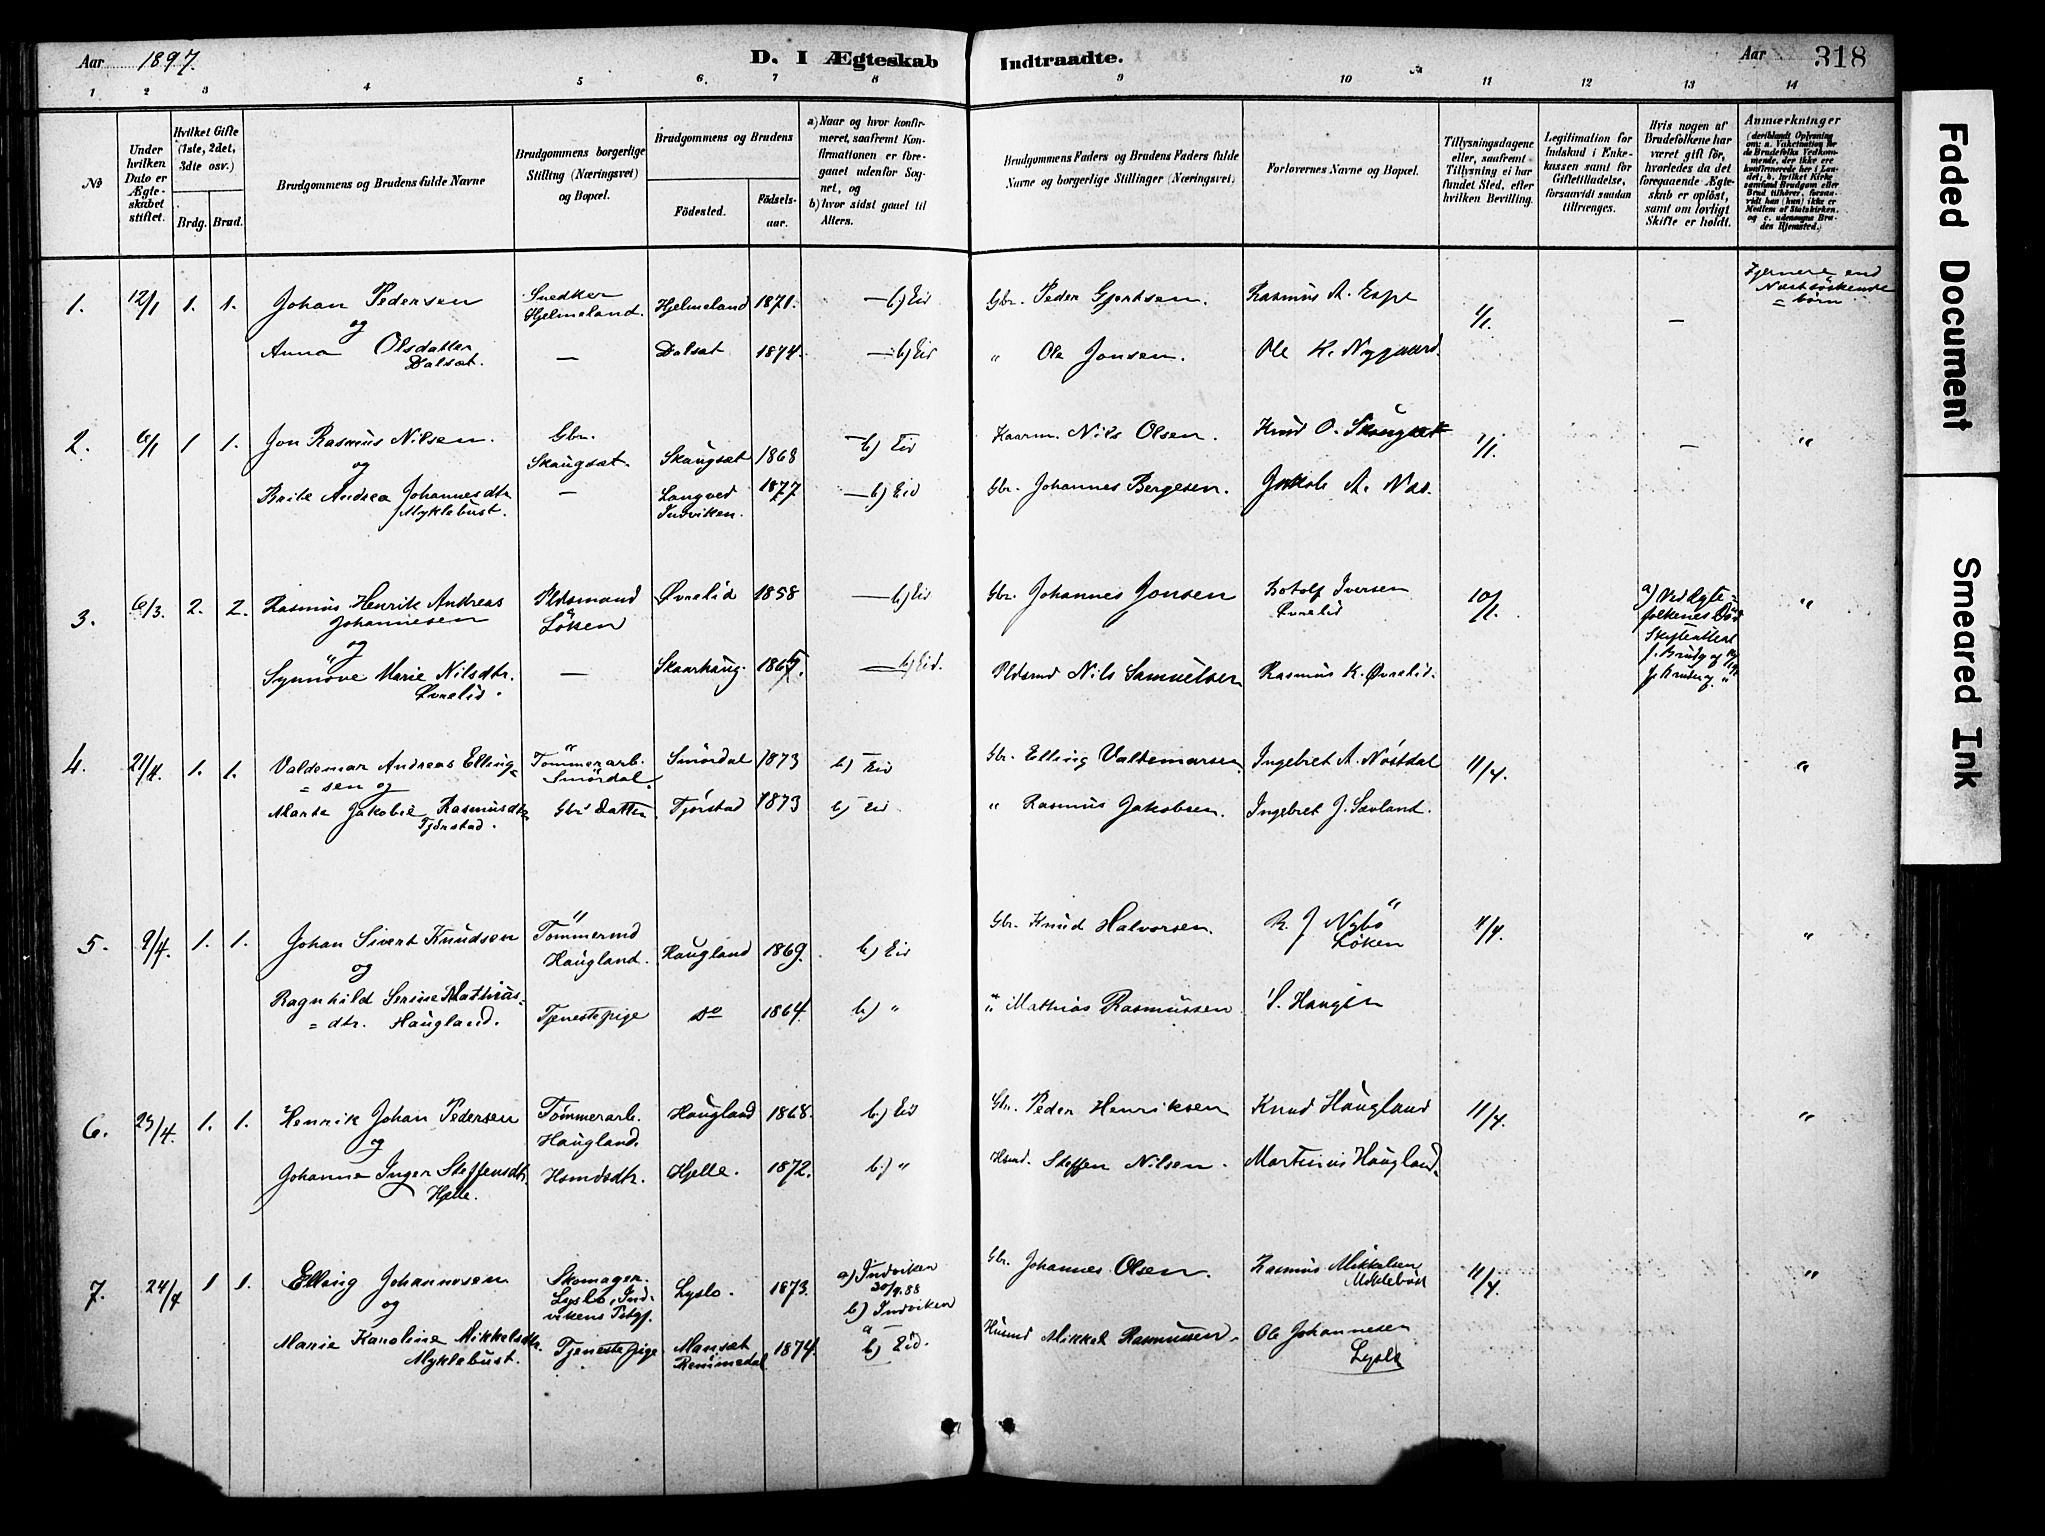 Aar 1897.
D. I Ægteskab Indtraadte.
Aar 318
1 2 3 4 5 6. 7 8 9 10 11 12 13 14
No
Under hvilken Dato er Ægteskabet stiftet.
Hvilket Gifte (1ste, 2det, 3die osv.)
Brdg. Brud.
Brudgommens og Brudens fulde Navne
Brudgommens borgerlige Stilling (Næringsvei) og Bopæl.
Brudgommens og Brudens
Födested. Födselsaar.
a) Naar og hvor konfirmeret, saafremt Konfirmationen er foregaaet udenfor Sognet, og
b) hvor sidst gaaet til Alters.
Brudgommens Faders og Brudens Faders fulde Navne og borgerlige Stillinger (Næringsvei)
Forlovernes Navne og Bopæl.
Tillysningsdagene eller, saafremt Tillysning ei har fundet Sted, efter hvilken Bevilling.
Legitimation for Indskud i Enkekassen samt for Giftetilladelse, forsaavidt saadan tiltrænges.
Hvis nogen af Brudefolkene har været gift för, hvorledes da det foregaaende Ægteskab er oplöst, samt om lovligt Skifte er holdt.
Anmærkninger
(deriblandt Oplysning om: a. Vakcination for de Brudefolks Vedkommende, der ikke ere konfirmerede her i Landet; b. hvilket Kirkesamfund Brudgom eller Brud tilhörer, forsaavidt han (hun) ikke er Medlem af Statskirken, og c. udensogns Brudes Hjemsted.)
1. 12/1 1. 1. Johan Pedersen Snedker Hjelmeland. Hjelmeland 1871. — b) Eid Gbr. Peder Gjertsen. Rasmus A. Espe 1/1. — Fjernere end Nästsöskende = börn
og
Anna Olsdatter Dalsæt. — Dalsæt 1874. — b) Eid " Ole Jonsen. Ole K. Nygaard.
2. 6/1 1 1. Jon Rasmus Nilsen. Gbr. Skaugsæt. Skaugsæt 1868 — b) Eid Kaarm. Nils Olsen. Knud O. Skaugset 1/1. — "
og
Brite Andrea Johannesdtr Myklebust. — Langved Indviken. 1877 — b) Eid Gbr. Johannes Bergesen. Jakob A. Nos.
3. 6/3. 2. 2. Rasmus Henrik Andreas Johannesen Pldsmand Løken Øvrelid 1858 — b) Eid Gbr. Johannes Jonsen Botolf Iversen Øvrelid 10/1. "
og
Synnöve Marie Nilsdtr. Øvrelid. — Skaarhaug. — b) Eid. Pldsmd Nils Samuelsen Rasmus K. Øvrelid.
4. 21/4. 1. 1. Valdemar Andreas Elling= = sen og Tömmerarb. Smördal. Smördal 1873 b) Eid Gbr. Elling Valdemarsen. Ingebret A. Nöstdal 11/4. "
Marte Jakobie Rasmusdtr Tjörstad. Gbr. datter Tjörstad 1873 b) Eid " Rasmus Jakobsen. Ingebret J. Sævland.
5. 9/4. 1. 1. Johan Sivert Knudsen Tömmermd Haugland. Haugland 1869. b) Eid Gbr. Knud Halvorsen. R. J. Nybö Løken 4/4. "
og
Ragnhild Serine Mathias= = dtr. Haugland. Tjenestepige do 1864. b) " " Mathias Rasmussen S. Haugen
6. 23/4. 1. 1. Henrik Johan Pedersen Tömmerarb. Haugland. Haugland 1868. b.) Eid Gbr. Peder Henriksen Knud Haugland 11/4. "
og
Johanne Inger Steffensdtr. Hjelle. Hsmdsdtr. Hjelle. 1872. b.) " Hsmd. Steffen Nilsen. Martinus Haugland.
7. 24/4 1 1. Elling Johannesen Skomager. Lyslo, Indvikens Pstgj. Lyslo. 1873. a) Indviken 30/9.88 b) Indviken Gbr. Johannes Olsen. Rasmus Mikkelsen Miklebust 11/4. "
og
Marie Karoline Mikkelsdtr. Myklebust. Tjenestepige Mansæt Remmedal 1874. a — b) Eid. Husmd Mikkel Rasmussen. Ole Johannesen Lyslo
Faded Document
Smeared Ink